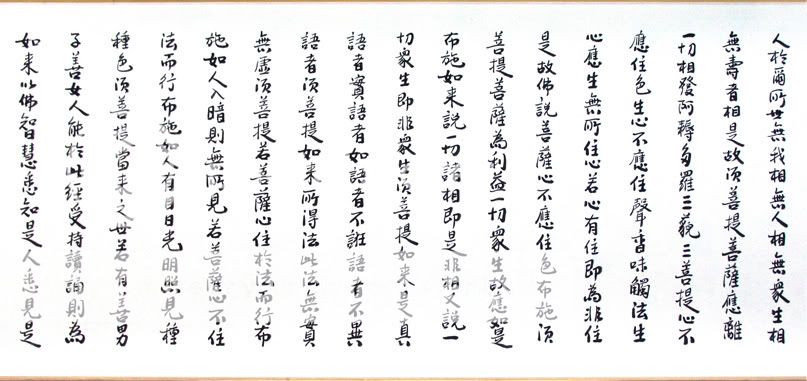 人於爾所世無我相無人相無衆生相
無壽者相是故須菩提菩薩應離
一切相發阿耨多羅三藐三菩提心不
應住色生心不應住聲香味觸法生
心應生無所住心若心有住即為非住
是故佛說菩薩心不應住色布施須
菩提菩薩為利益一切衆生故應如是
布施如来說一切諸相即是非相又說一
切衆生即非衆生須菩提如来是真
語者實語者如語者不誑語者不異
語者須菩提如来所得法此法無實
無虛須菩提若菩薩心住於法而行布
施如人入暗則無所見若菩薩心不住
法而行布施如人有目日光明照見種
種色須菩提當来之世若有善男
子善女人能於此經受持讀誦則為
如来以佛智慧悉知是人悉見是